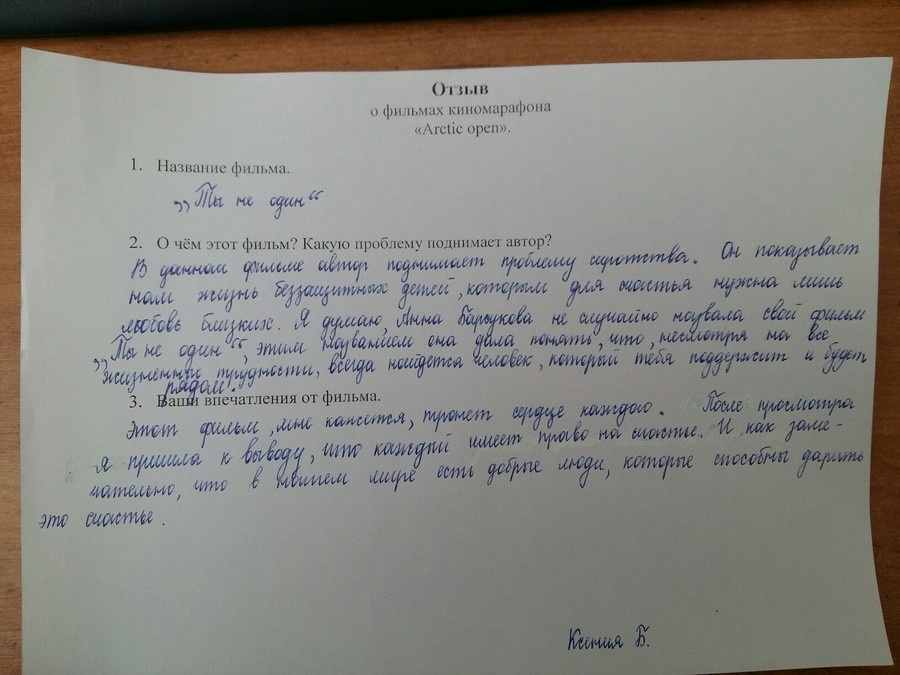 Отзыв
о фильмах киномарафона
«Arctic open».
1. Название фильма.
„Ты не один“
2. О чём этот фильм? Какую проблему поднимает автор?
В данном фильме автор поднимает проблему сиротства. Он показывает
нам жизнь беззащитных детей, которым для счастья нужна лишь
любовь близких. Я думаю, Анна Барсукова не случайно назвала свой фильм
„Ты не один“, этим названием она дала понять, что, несмотря на все
жизненные трудности, всегда найдется человек, который тебя поддержит и будет
рядом.
3. Ваши впечатления от фильма.
Этот фильм, мне кажется, тронет сердце каждого. После просмотра
я пришла к выводу, что каждый имеет право на счастье. И как заме-
чательно, что в нашем мире есть добрые люди, которые способны дарить
это счастье.
Ксения Б.